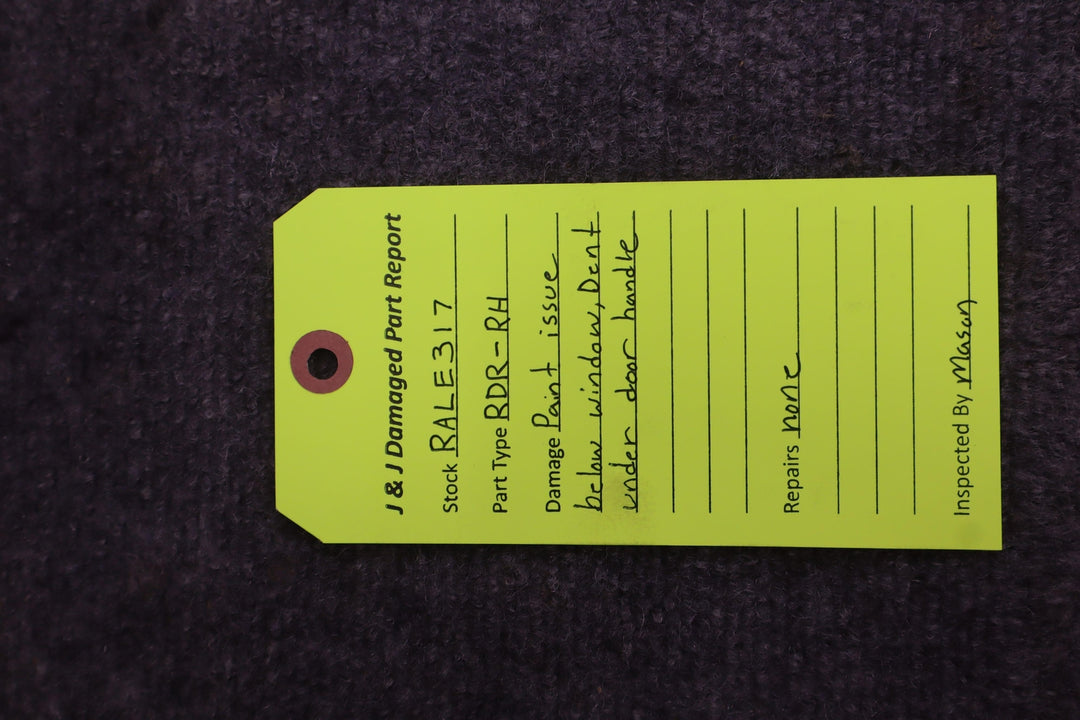 J & J Damaged Part Report
Stock RALE317
Part Type RDR-RH
Damage Paint issue
below window, Dent
under door handle
Repairs none
Inspected By Mason